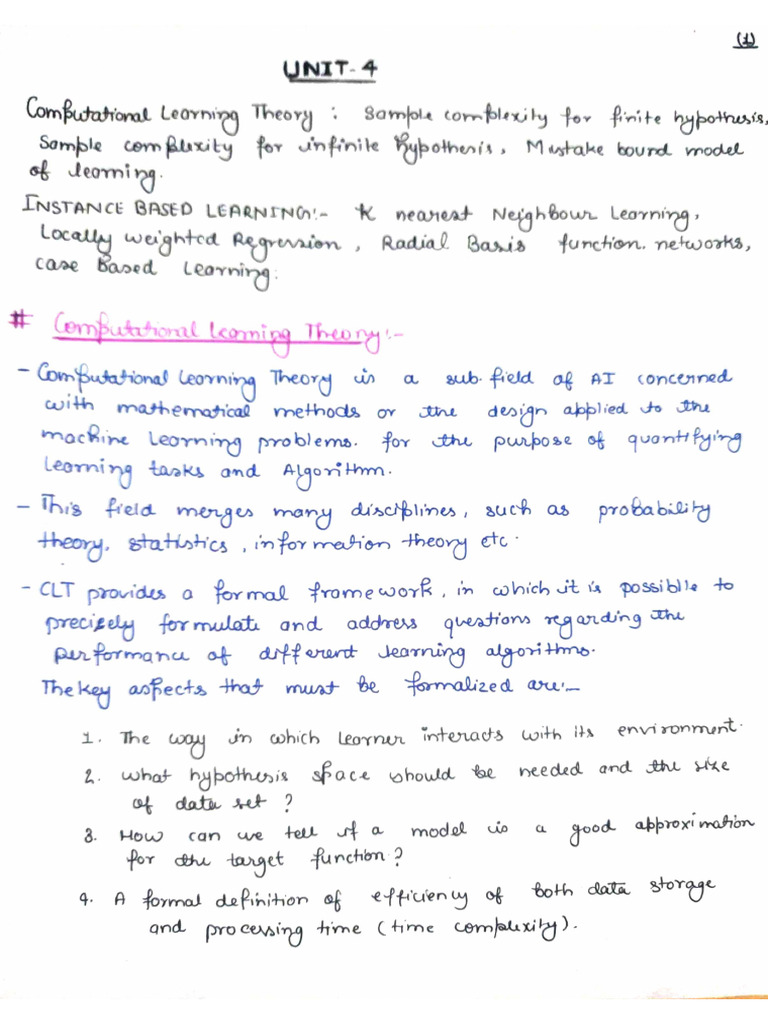 (1)
UNIT-4
Computational Learning Theory : Sample complexity for finite hypothesis,
Sample complexity for infinite hypothesis, Mistake bound model
of learning.
INSTANCE BASED LEARNING:- K nearest Neighbour Learning,
Locally Weighted Regression, Radial Basis function networks,
case Based Learning:
# Computational Learning Theory:-
- Computational Learning Theory is a sub-field of AI concerned
with mathematical methods or the design applied to the
machine learning problems. for the purpose of quantifying
learning tasks and Algorithm.
- This field merges many disciplines, such as probability
theory, statistics, information theory etc.
- CLT provides a formal framework, in which it is possiblle to
precisely formulate and address questions regarding the
performance of different learning algorithms.
The key aspects that must be formalized are:-
1. The way in which learner interacts with its environment.
2. what hypothesis space should be needed and the size
of data set ?
3. How can we tell if a model is a good approximation
for the target function?
4. A formal definition of efficiency of both data storage
and processing time (time complexity).